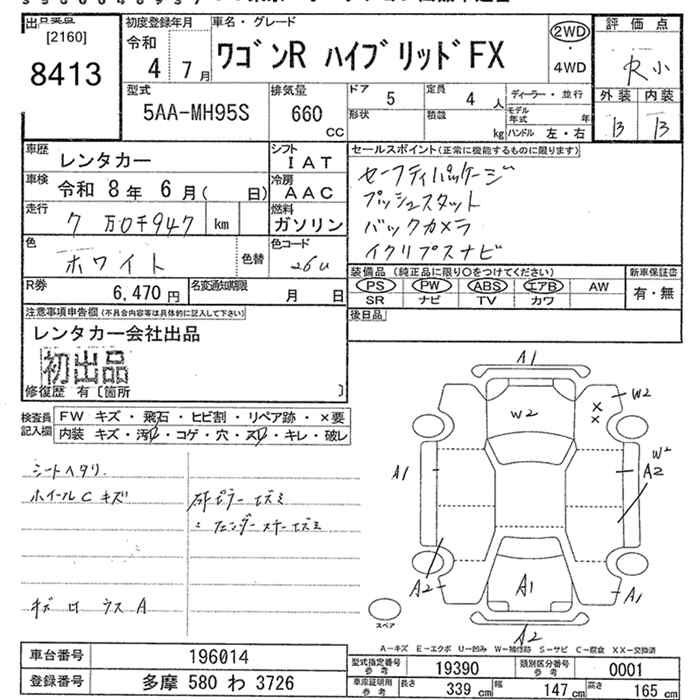 出品番号 初度登録年月 車名・グレード 2WD 評価点
[2160] 令和 ワゴンR ハイブリッドFX ・ R小
8413 4 7月 4WD 外装 内装
型式 排気量 ドア 5 定員 4人 ディーラー・並行 B B
5AA-MH95S 660 形状 積載 モデル年式 年
CC kg ハンドル 左・右
車歴 レンタカー シフト セールスポイント(正常に機能するものに限ります)
IAT セーフティパッケージ
車検 令和 8年 6月( 日) 冷房 AAC プッシュスタット
走行 7万0千947 km 燃料 ガソリン バックカメラ
色 ホワイト 色替 色コード 26U イクリプスナビ
装備品 (純正品に限り○をつけてください) 新車保証書
R券 6,470円 名変通知期限 月 日 PS PW ABS エアB AW 有・無
SR ナビ TV カワ
注意事項申告欄(不具合内容等は具体的に記入して下さい) 後日品
レンタカー会社出品
初出品
修復歴 有〔箇所 〕
検査員記入欄 FW キズ・飛石・ヒビ割・リペア跡・×要
内装 キズ・汚・コゲ・穴・スレ・キレ・破レ
A1
W2 W2
シートヘタリ W2
ホイールC キズ A1 A2
フェンダーステーエズミ
A2 A1 A1
スペア A2
A-キズ E-エクボ U-凹み W-補修跡 S-サビ C-腐食 XX-交換済
車台番号 196014 型式指定番号 参考 19390 類別区分番号 参考 0001
登録番号 多摩 580 わ 3726 車庫証明用 参考 長さ 339cm 幅 147cm 高さ 165cm